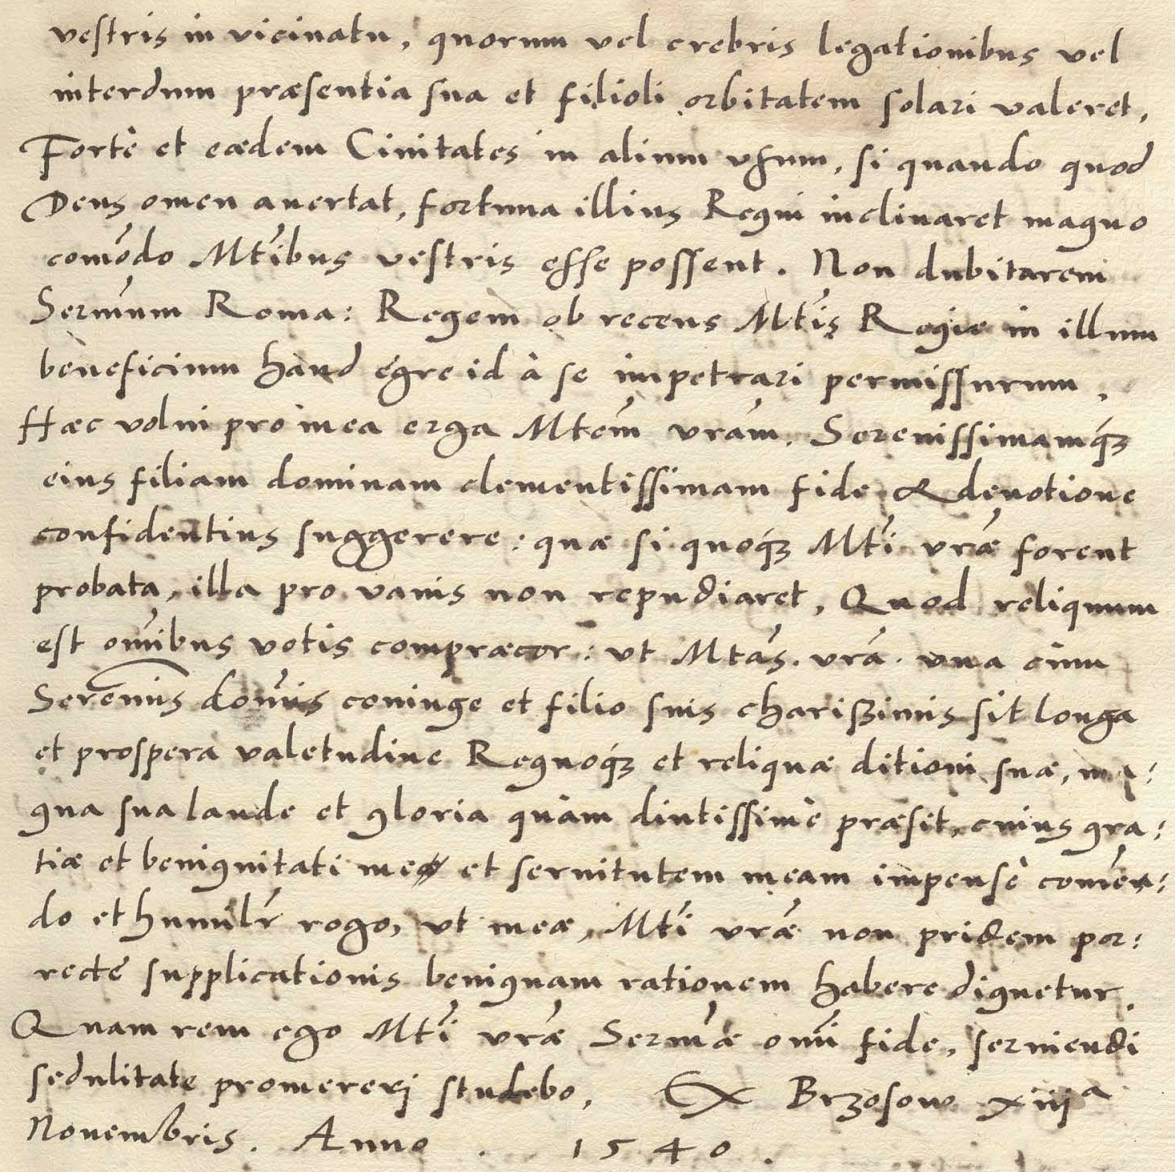 vestris in vicinatu, quorum vel crebris legationibus vel
interdum præsentia sua et filioli orbitatem solari valeret,
Fortè et eædem Ciuitates in alium vsum, si quando quod
Deus omen auertat, fortuna illius Regni inclinaret magno
comōdo Mtībus vestris esse possent. Non dubitarem
Sermūm Roma: Regem ob recens Mtīs Regie in illum
beneficium haud egre id à se impetrari permissurum,
Hæc volui pro mea erga Mtēm vrām, Serenissimamq́3
eius filiam dominam clementissimam fide & deuotione
confidentius suggerere: quæ si quoq́3 Mtī vræ̃ forent
probata, illa pro vanis non repudiaret, Quod reliquum
est omībus votis compræcor: vt Mtās. vrā. vna cum
Serēmis domīs coniuge et filio suis charißimis sit longa
et prospera valetudine Regnoq́3 et reliquæ ditioni suæ, ma:
gna sua laude et gloria quàm diutissimè præsit, cuius gra:
tiæ et benignitati me et seruitutem meam impensè comēn:
do et humilr̃ rogo, vt meæ, Mtī vræ̃ non pridem por:
recte supplicationis benignam rationem habere dignetur.
Quam rem ego Mtī vræ̃ Sermæ̃ omī fide, seruiendi
sedulitate promererj studebo, Ex Brzosow xiiijᵃ
Novembris. Anno . 1540.